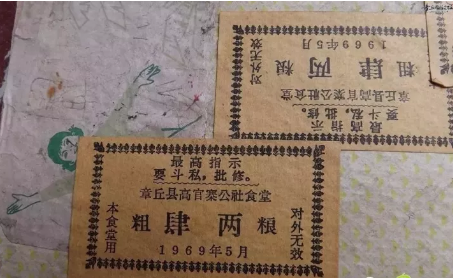 最高指示
要斗私,批修。
章丘县高官寨公社食堂
粗肆两粮
本食堂用
对外无效
1969年5月
最高指示
要斗私,批修。
章丘县高官寨公社食堂
粗肆两粮
对外无效
1969年5月